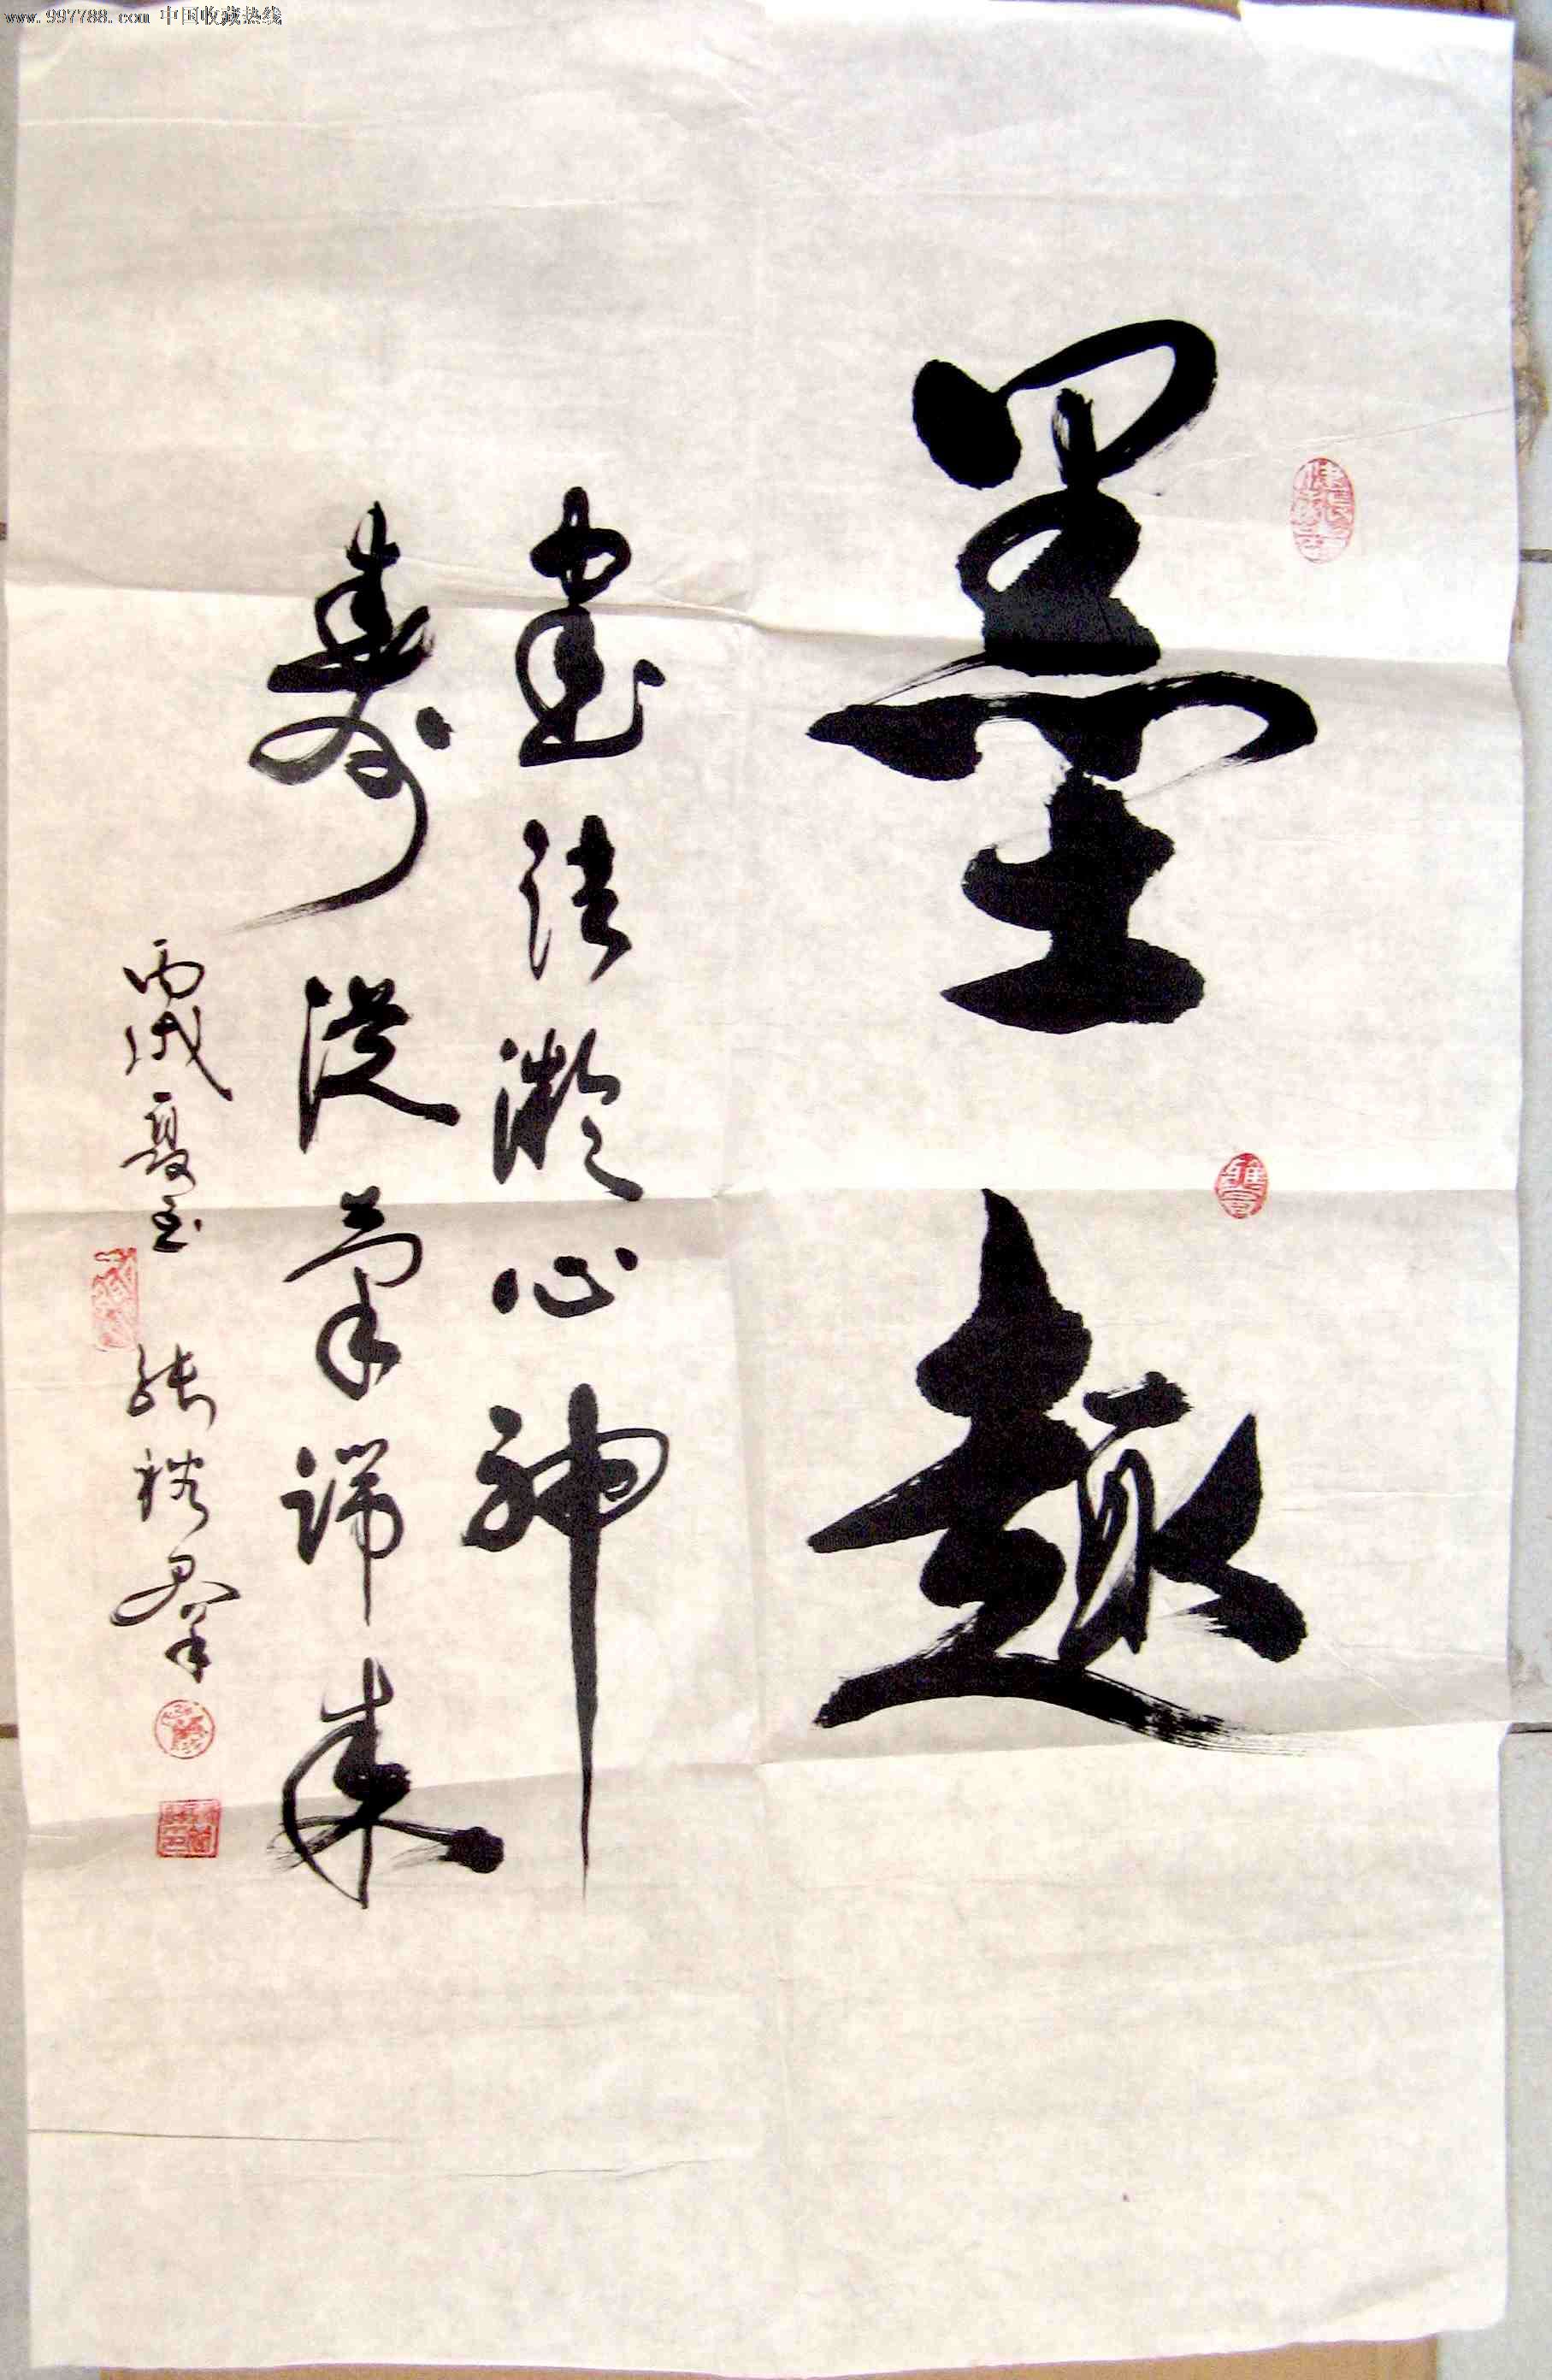 www.997788.com 中国收藏热线
墨趣
画法凝心神
寿从笔端来
丙戌夏至 张裕群